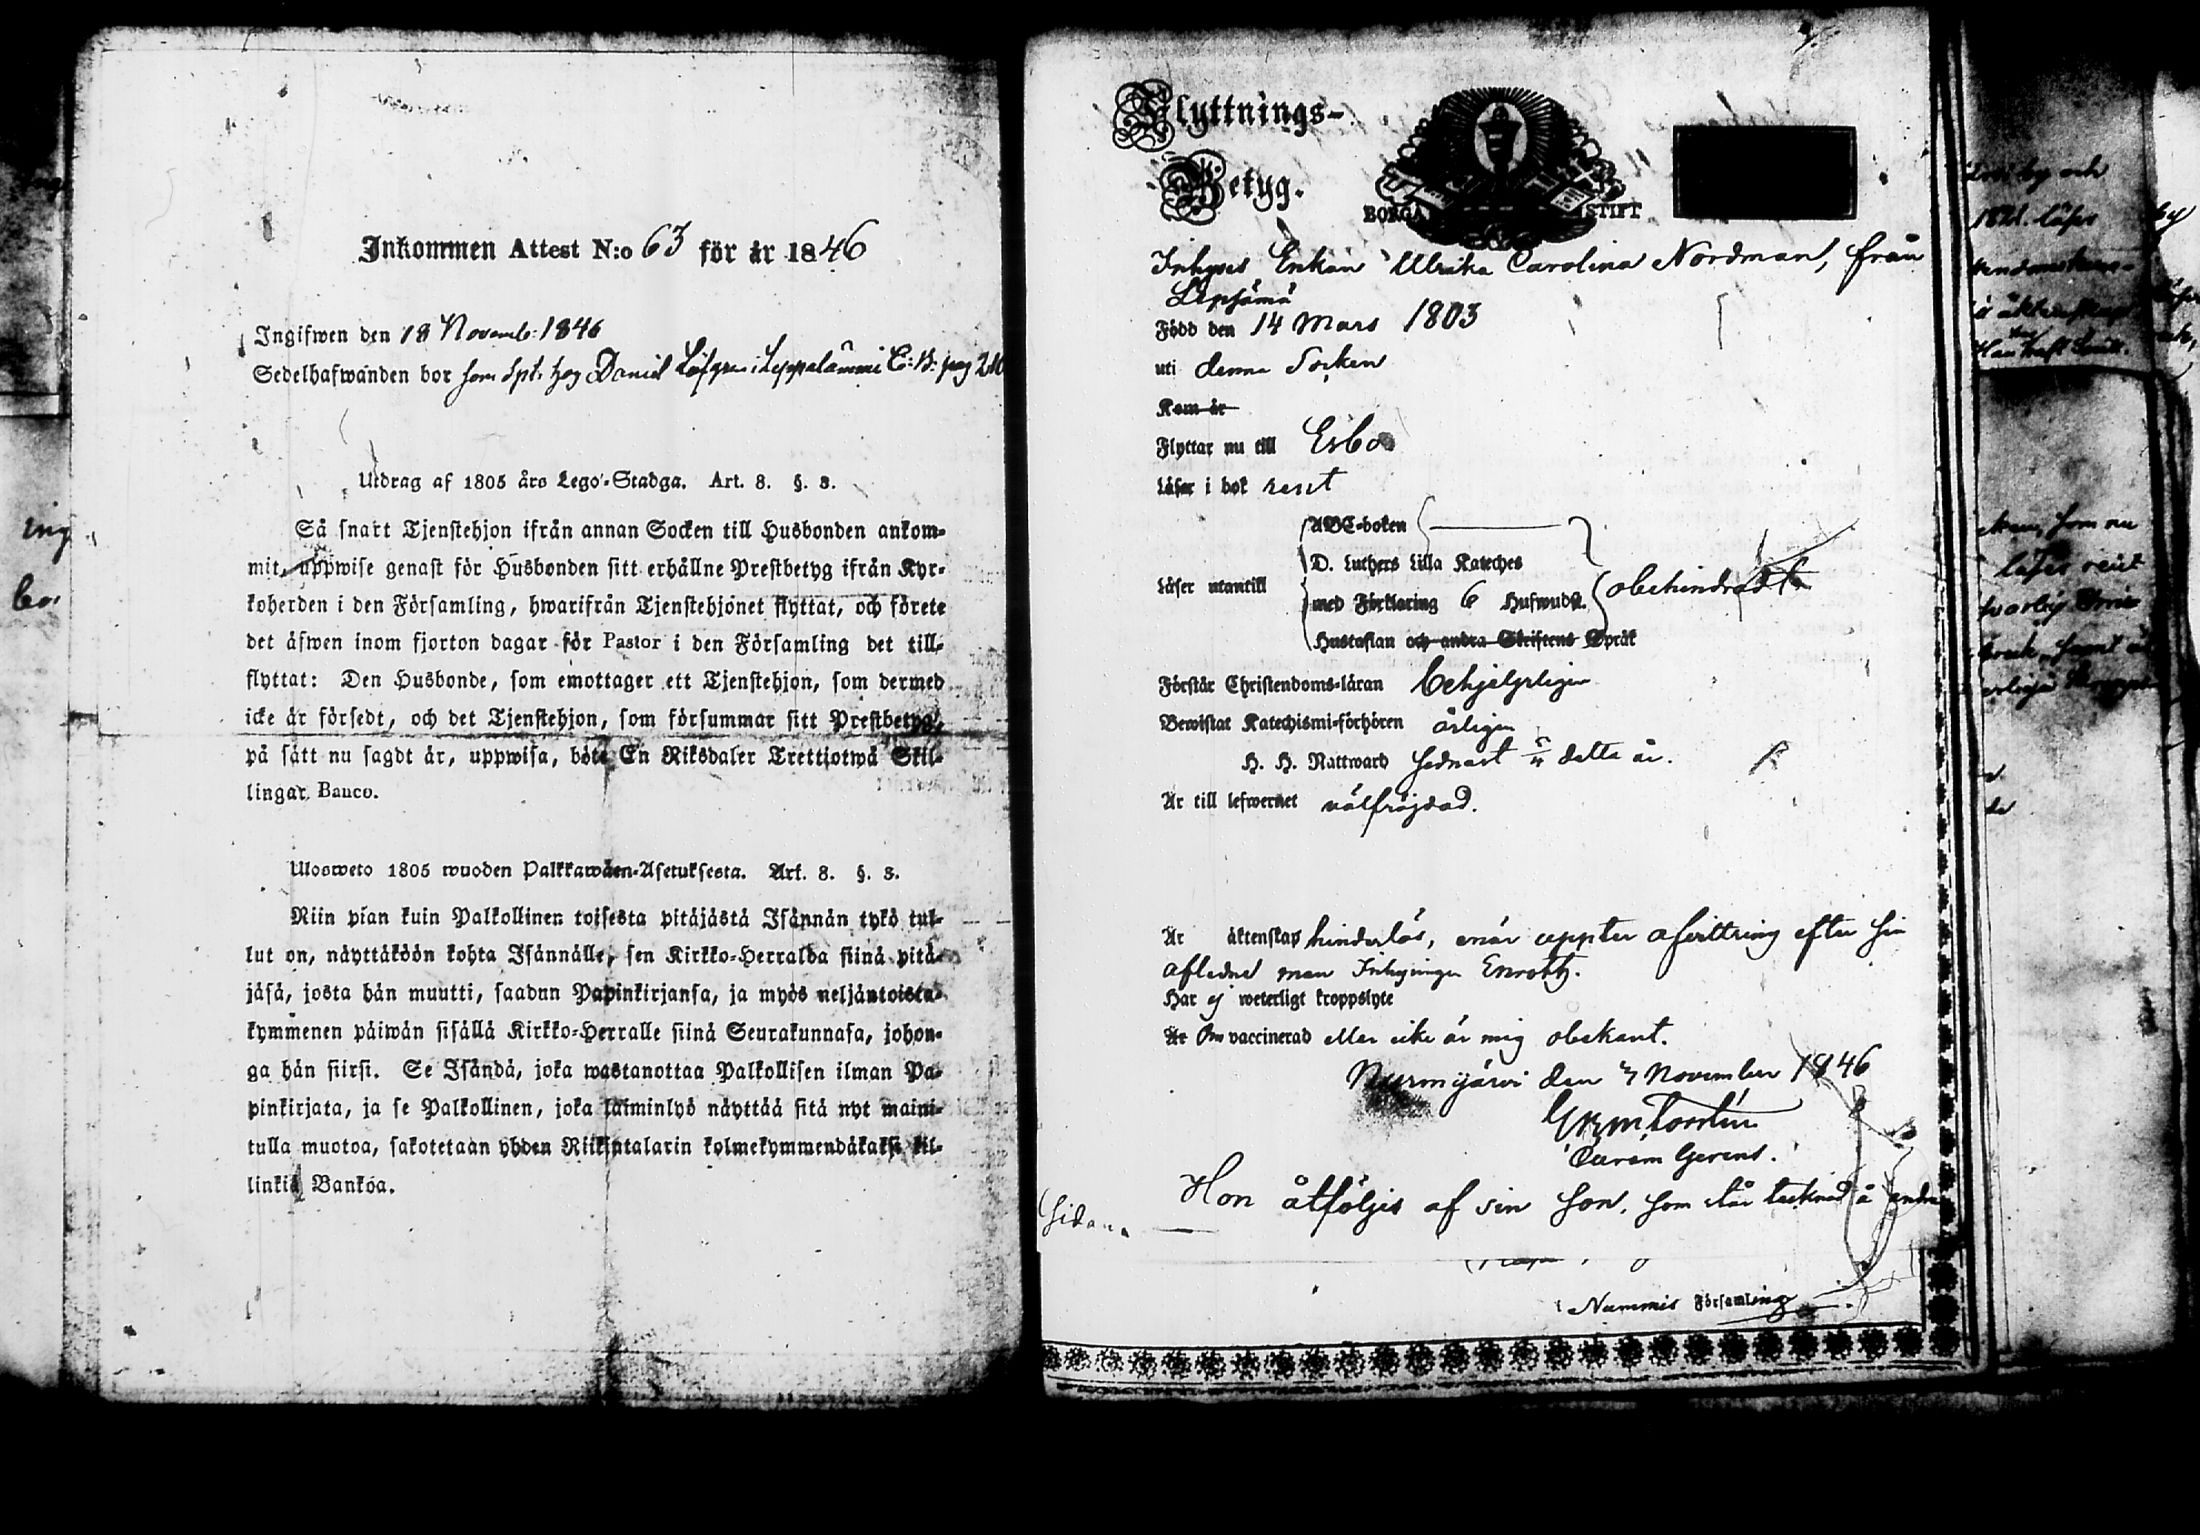 Inkommen Attest N:o 63 för år 1846
Ingifwen den 18 Novemb: 1846
Sedelhafwanden bor hos Daniel Löfgren i Leppälämmi C: B: pag 210
Utdrag af 1805 års Lego-Stadga. Art. 8. §. 3.
Så snart Tjenstehjon ifrån annan Socken till Husbonden ankom-
mit, uppwise genast för Husbonden sitt erhållne Prestbetyg ifrån Kyr-
koherden i den Församling, hwarifrån Tjenstehjonet flyttat, och förete
det äfwen inom fjorton dagar för Pastor i den Församling det till-
flyttat: Den Husbonde, som emottager ett Tjenstehjon, som dermed
icke är försedt, och det Tjenstehjon, som försummar sitt Prestbetyg,
på sätt nu sagdt är, uppwisa, böte En Riksdaler Trettiotwå Skil-
lingar Banco.
Ulosweto 1805 wuoden Palkkawäen-Asetuksesta. Art. 8. §. 3.
Niin pian kuin Palkollinen toisesta pitäjästä Isännän tykö tul-
lut on, näyttäköön kohta Isännälle, sen Kirkko-Herralda siinä pitä-
jäsä, josta hän muutti, saadun Papinkirjansa, ja myös neljäntoista-
kymmenen päiwän sisällä Kirkko-Herralle siinä Seurakunnasa, johon-
ga hän siirsi. Se Isändä, joka wastanottaa Palkollisen ilman Pa-
pinkirjata, ja se Palkollinen, joka laiminlyö näyttää sitä nyt maini-
tulla muotoa, sakotetaan yhden Riiksntalarin kolmekymmendäkaksi kil-
linkiä Bankoa.
Flyttnings-
Betyg.
BORGÅ STIFT
Inhyses Enkan Ulrika Carolina Nordman, från
Lepsämä
Född den 14 Mars 1803
uti denna Socken
Kom år
Flyttar nu till Esbo
Läser i bok rent
ABC-boken
D. Luthers Lilla Kateches
Läser utantill med Förklaring 6 Hufwudst. obehindradt
Hustaflan och andra Skriftens Språk
Förstår Christendoms-läran behjelpligen
Bewistat Katechismi-förhören årligen
H. H. Nattward sednast detta år.
Är till lefwernet välfrejdad.
Är äktenskap hinderlös, enär uppter afvittring efter sin
afledne man Inhysingen Enroth.
Har ej weterligt kroppslyte
Är Om vaccinerad eller icke är mig obekant.
Nurmijärvi den 7 November 1846
Hon åtföljes af sin son, som står tecknad å andra
sidan.
i Nummis Församling